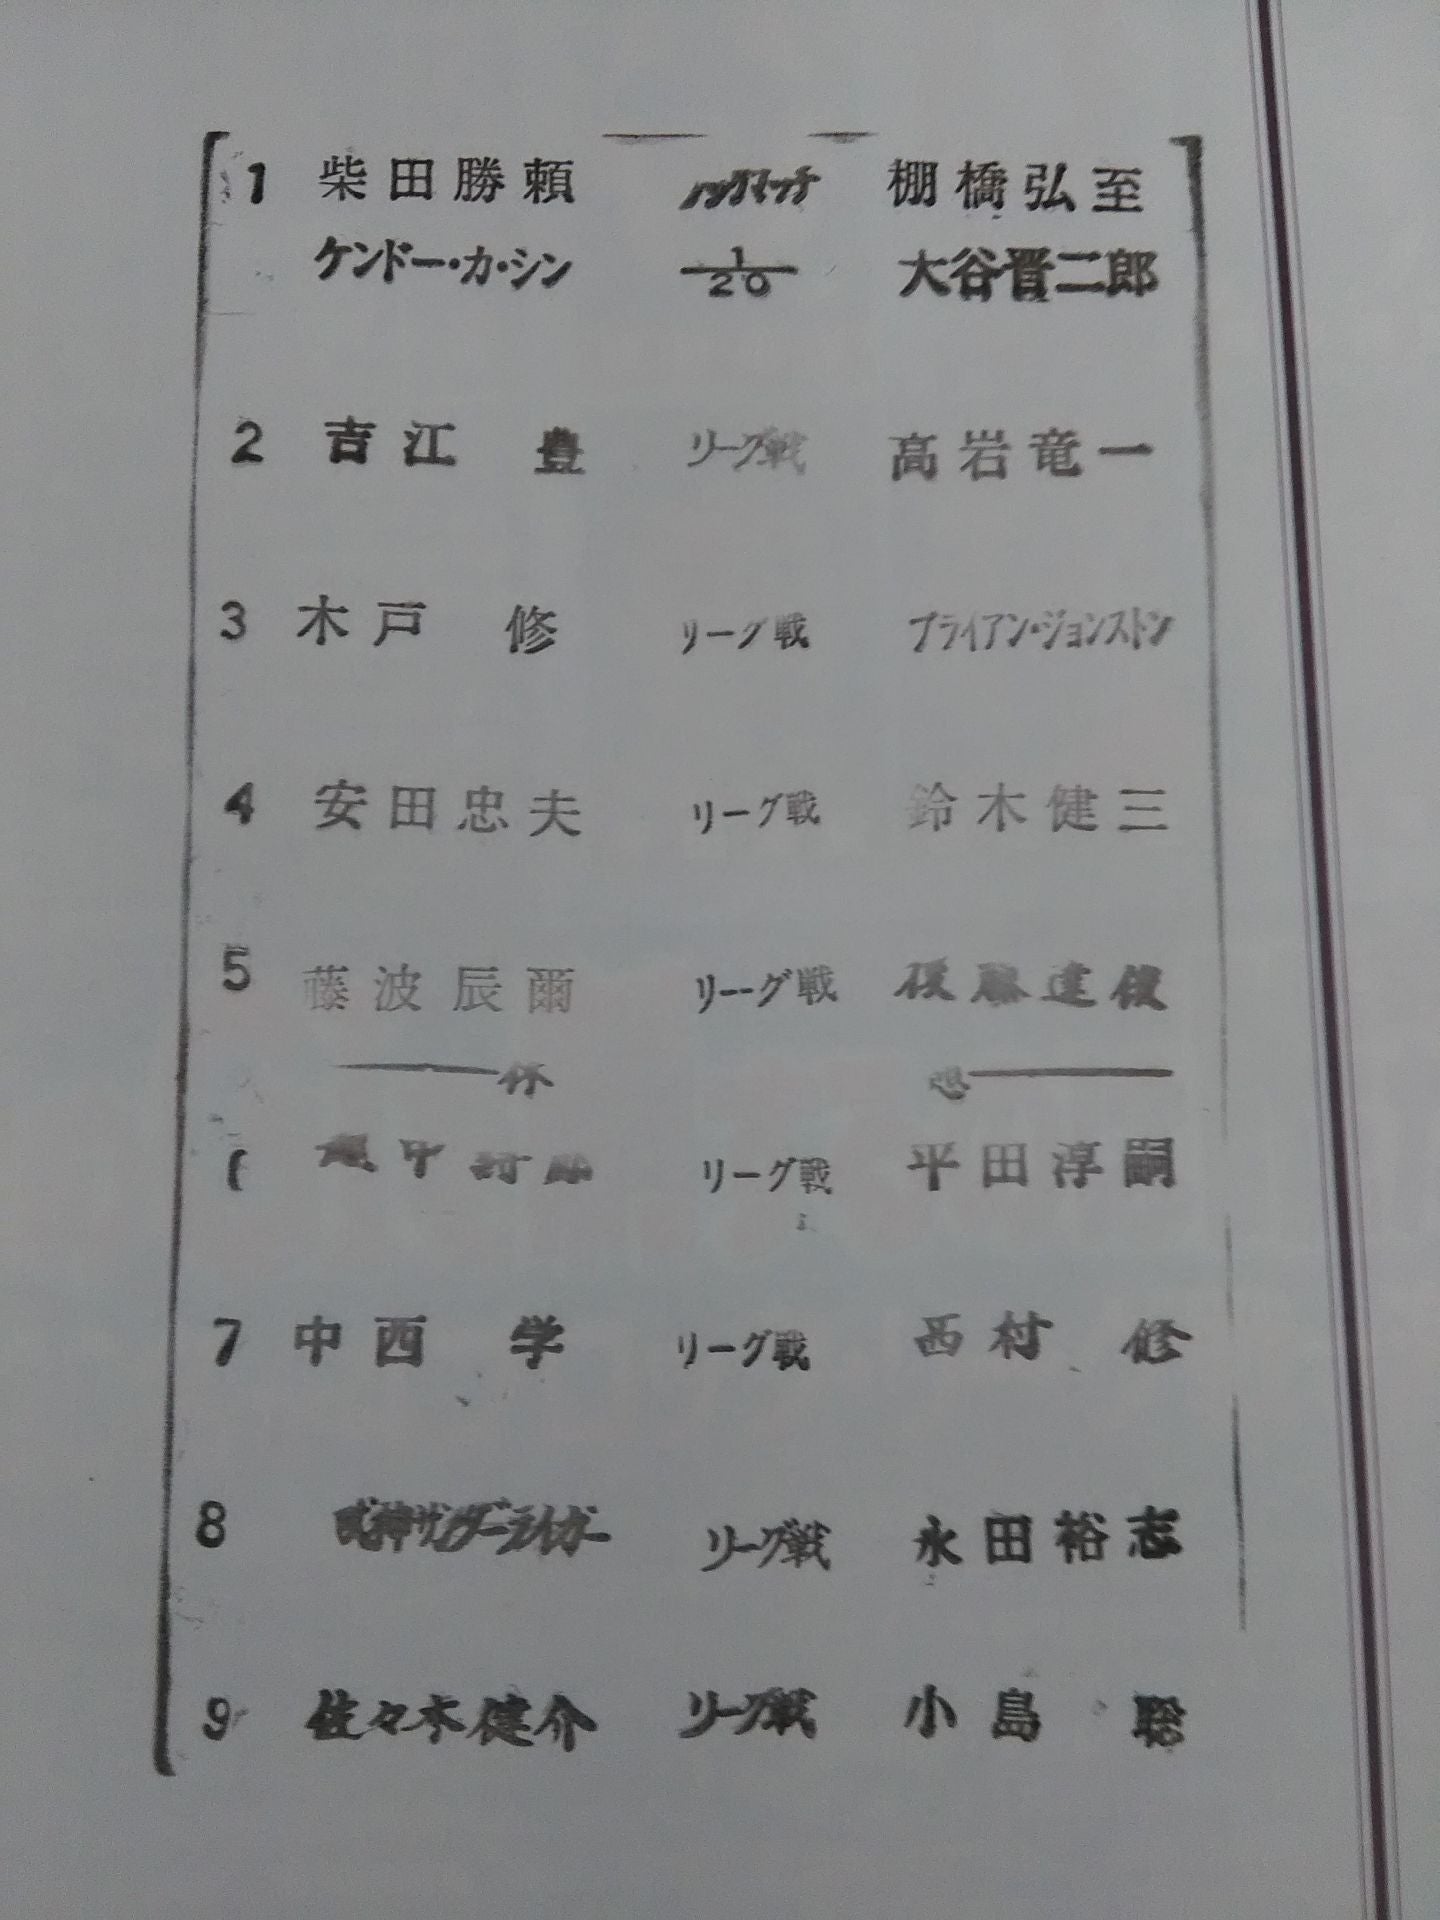 1 柴田勝頼 タッグマッチ 棚橋弘至
ケンドー・カ・シン 1/20 大谷晋二郎
2 吉江 豊 リーグ戦 高岩竜一
3 木戸 修 リーグ戦 ブライアン・ジョンストン
4 安田忠夫 リーグ戦 鈴木健三
5 藤波辰爾 リーグ戦 後藤達俊
休 憩
リーグ戦 平田淳嗣
7 中西 学 リーグ戦 西村 修
8 獣神サンダーライガー リーグ戦 永田裕志
9 佐々木健介 リーグ戦 小島 聡